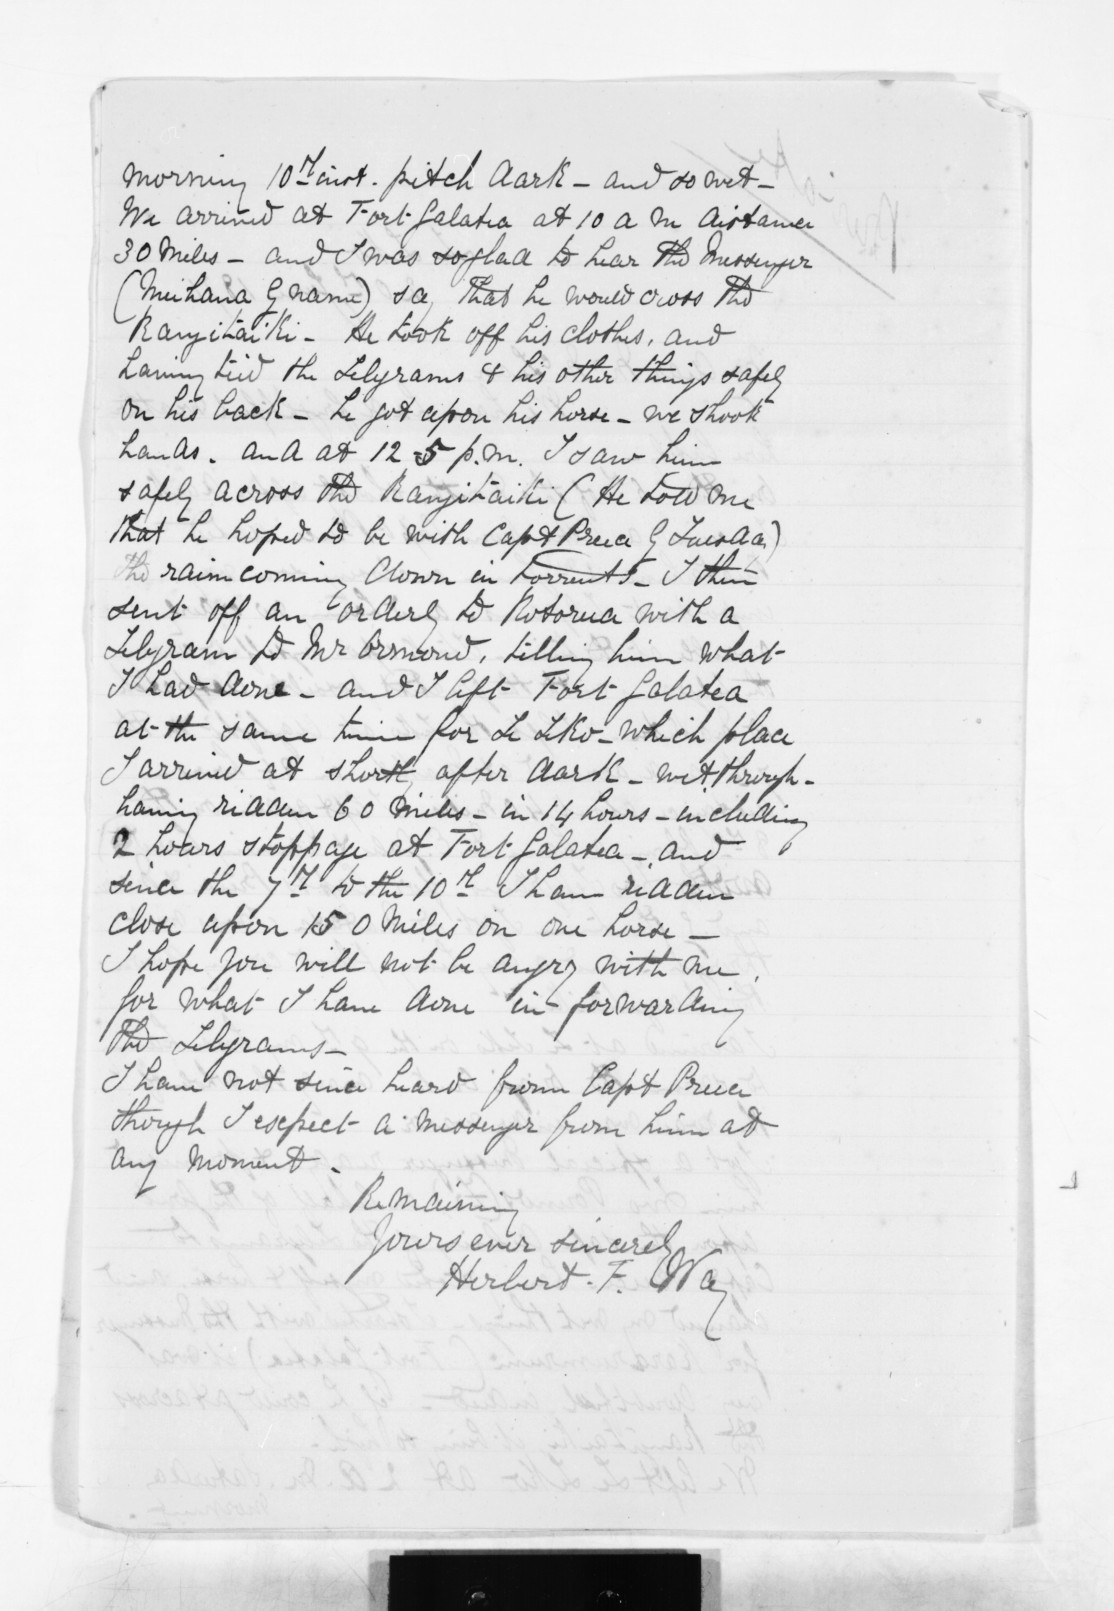 morning 10th inst. pitch dark - and so wet -
We arrived at Fort Galatea at 10 a m distance
30 Miles - and I was so glad to hear the Messenger
(Meihana by name) say that he would cross the
Rangitaiki - He took off his clothes, and
having tied the Telegrams & his other things safely
on his back - he got upon his horse - we shook
hands. and at 12.5 p.m. I saw him
safely across the Rangitaiki (He told me
that he hoped to be with Capt Preece by Tuesday)
the rain coming down in torrents - I then
sent off an orderly to Rotorua with a
Telegram to Mr Ormond, telling him what
I had done - and I left Fort Galatea
at the same time for Te Teko - which place
I arrived at shortly after dark - wet through -
having ridden 60 Miles - in 14 hours - including
2 hours stoppage at Fort Galatea - and
since the 7th to the 10th I have ridden
close upon 150 Miles on one horse -
I hope you will not be angry with me,
for what I have done in forwarding
the Telegrams -
I have not since heard from Capt Preece
though I expect a messenger from him at
any moment.
Remaining
Yours ever sincerely
Herbert. F. Way